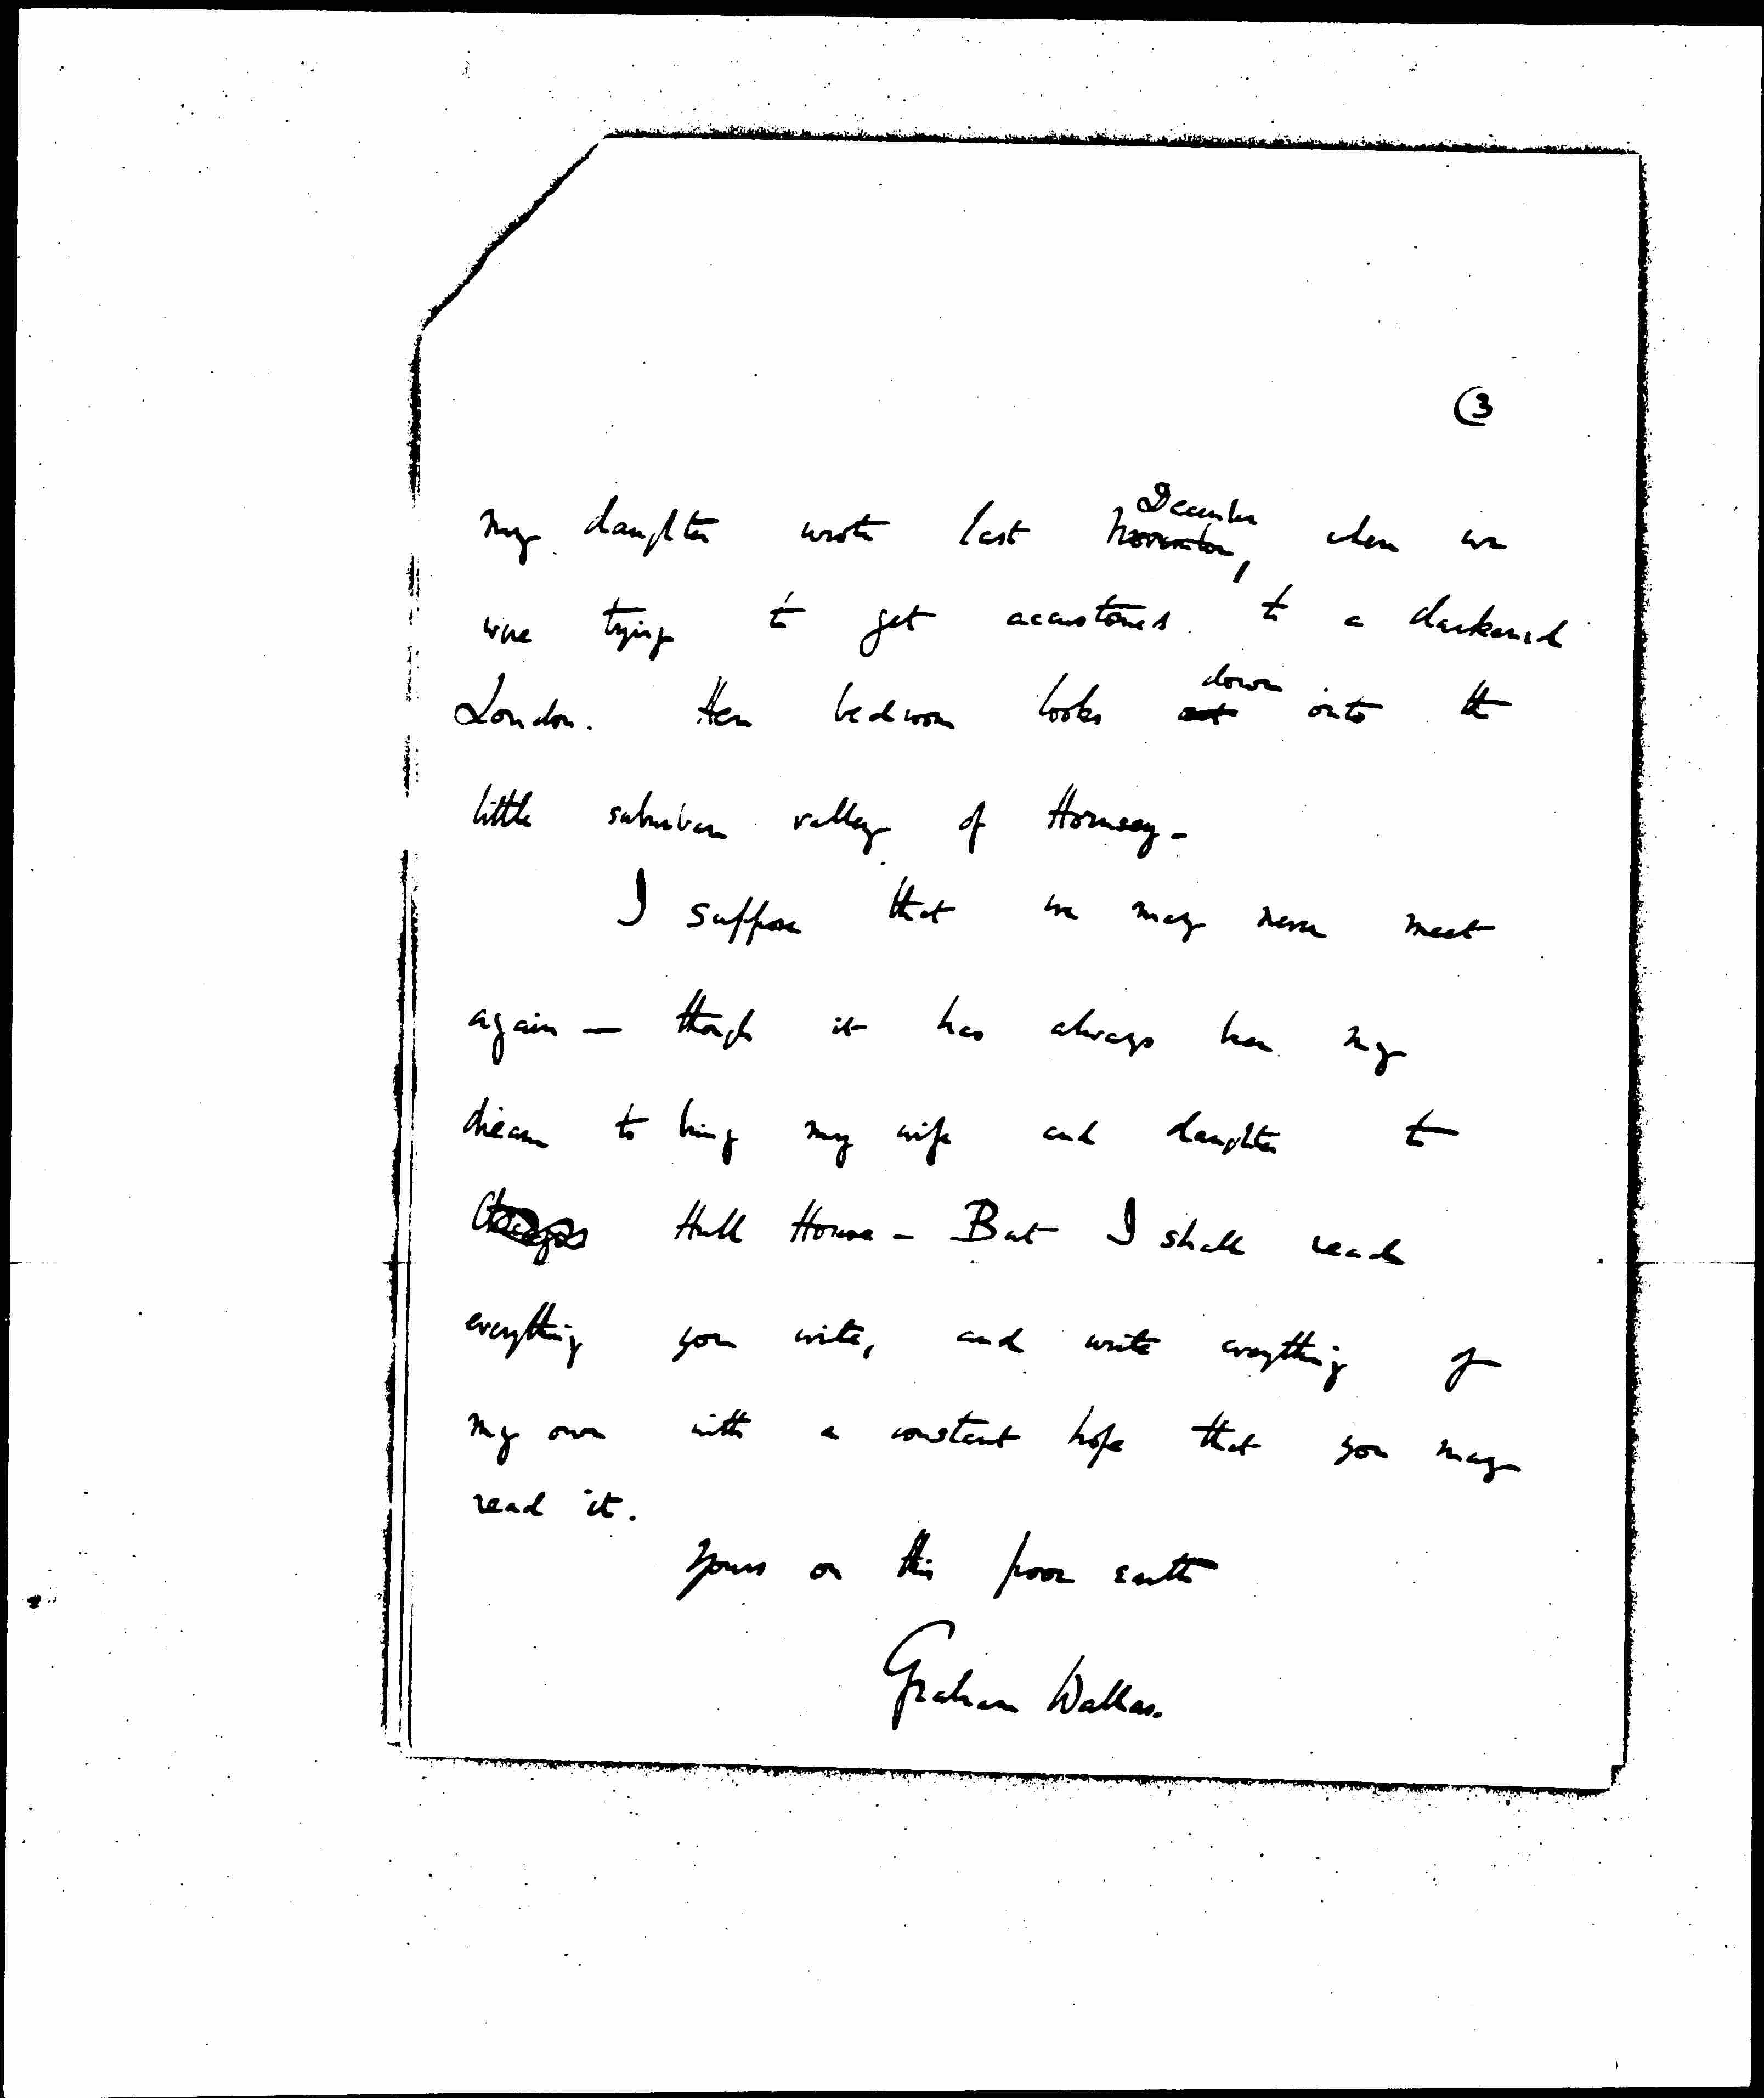 3
my daughter wrote last November, December when we
were trying to get accustomed to a darkened
London. Her bedroom looks out down onto the
little suburban valley of Hornsey -
I suppose that we may never meet
again — though it has always been my
dream to bring my wife and daughter to
Chicago Hull House - But I shall read
everything you write, and write everything of
my own with a constant hope that you may
read it.
Yours on this poor earth
Graham Wallas.